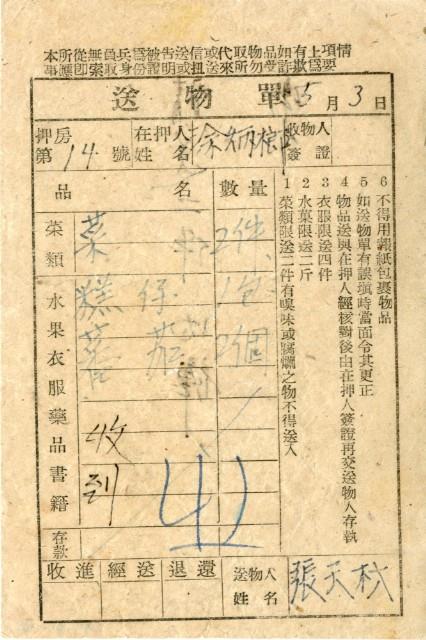 本所從無員兵爲被告送信或代取物品如有上項情
事應卽索取身份證明或扭送來所勿受詐欺爲要
送物單 5月3日
押房第14號
在押人姓名
收物人簽證
品名
數量
1 菜類限送二件有嗅味或腐爛之物不得送入
2 水菓限送二斤
3 衣服限送四件
4 物品送與在押人經核對後由在押人簽證再交送物人存執
5 如送物單有誤塡時當面令其更正
6 不得用報紙包裹物品
菜類
菜 2件
水果衣服藥品書籍
糕 1包
2個
收到
存款
收進 經送 退還
送物人姓名 張天秋